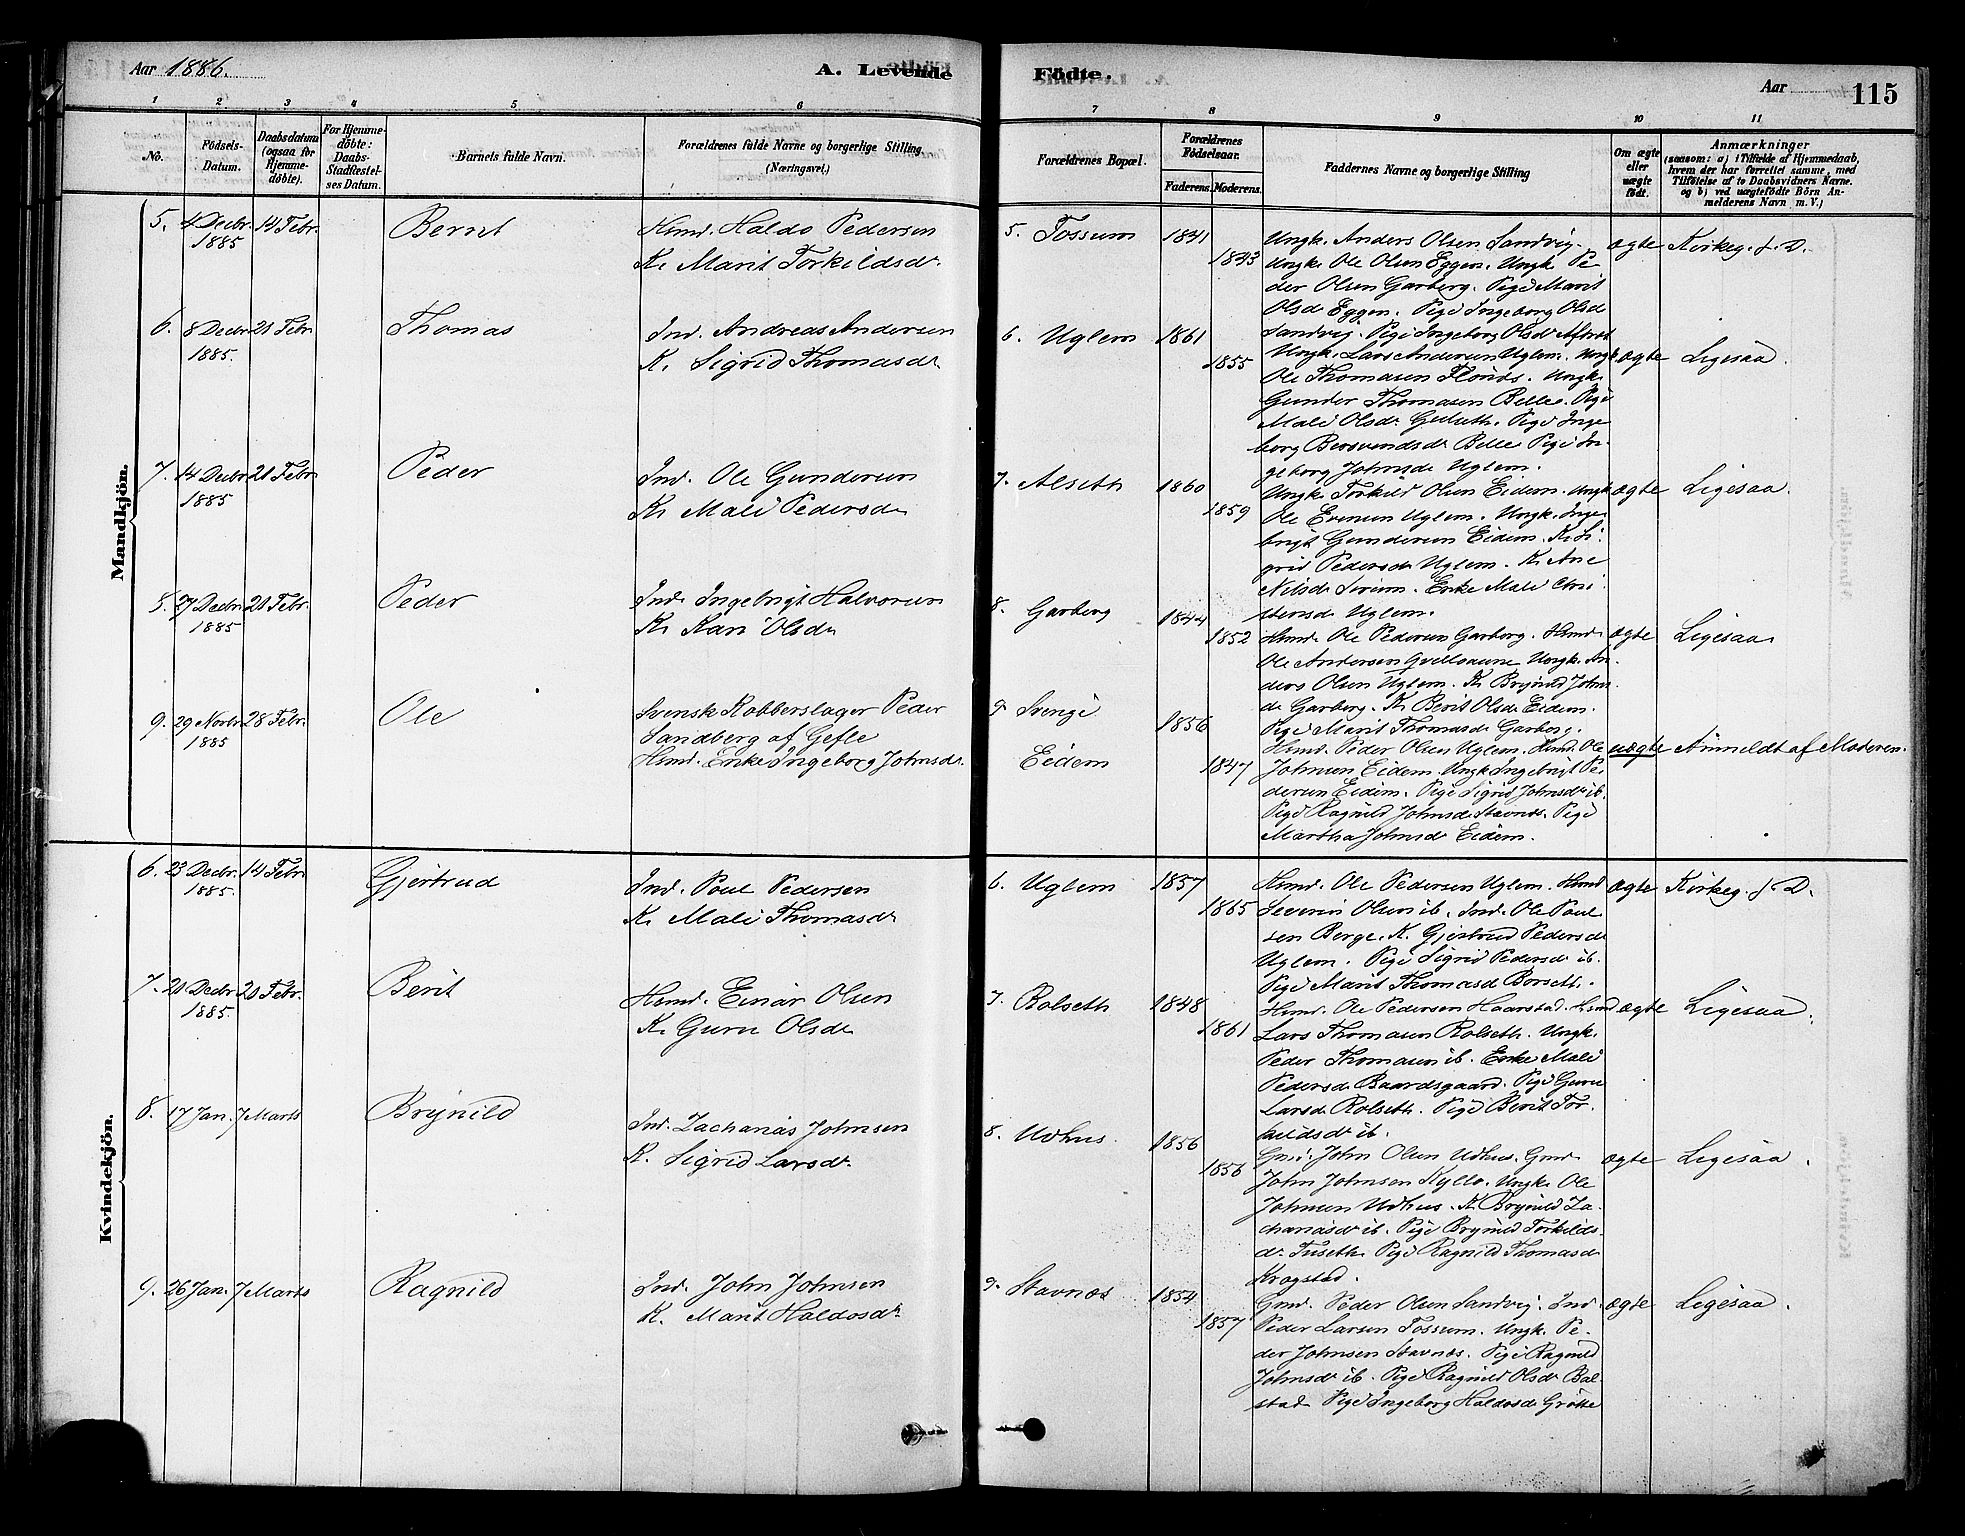 Aar 1886.
A. Levende
Födte.
Aar
115
1
2
3
4
5
6
7
8
9
10
11
No.
Födsels-
Datum.
Daabsdatum
(ogsaa for
Hjemme-
döbte).
For Hjemme-
döbte:
Daabs-
Stadfæstel-
ses Datum.
Barnets fulde Navn.
Forældrenes fulde Navne og borgerlige Stilling.
(Næringsvei.)
Forældrenes Bopæl.
Forældrenes
Födselsaar.
Faderens.
Moderens.
Faddernes Navne og borgerlige Stilling
Om ægte
eller
uægte
födt.
Anmærkninger
(saasom: a) i Tilfælde af Hjemmedaab,
hvem der har forrettet samme, med
Tilföielse af to Daabsvidners Navne.
og b) ved uægtefödte Börn An-
melderens Navn m.V.)
Mandkjön.
5. 4 Decbr. 14 Febr.
1885
Bernt
Hsmd. Haldo Pedersen
K. Marit Torkildsdr.
5. Tossum
1841
1843
Ungk. Anders Olsen Sandvig.
Ungk. Ole Olsen Eggen. Ungk. Pe
der Olsen Garberg. Pige Marit
Olsdr Eggen. Pige Ingeborg Olsd
Sandvig. Pige Ingeborg Olsdr
ægte
Kirkeg. f. D.
6. 8 Decbr 21 Febr
1885.
Thomas
Ind. Andreas Andersen
K. Sigrid Thomasdr
6. Uglem
1861
1855
Ungk. Lars Andersen Uglem. Ungk
Ole Thomasen Flönes. Ungk.
Gunder Thomasen Belle. Pige
Mali Olsdr. Pige Inge
borg Bersvendsdr Belle Pige In
geborg Johnsdr Uglem.
ægte
Ligesaa.
7. 14 Decbr 21 Febr
1885
Peder
Ind. Ole Gundersen
K. Mali Pedersdr
7. Alseth
1860
1859
Ungk. Torkild Olsen Eidem. Ungk
Ole Evensen Uglem. Ungk. Inge
brigt Gundersen Eidem. K. Si
grid Pedersdr Uglem. K. Ane
Nilsdr. Enke Mali Chri
stensdr Uglem.
ægte
Ligesaa.
8. 27 Decbr. 21 Febr.
1885
Peder
Ind. Ingebrigt Halvorsen
K. Kari Olsdr
8. Garberg
1844
1852
Hsmd. Ole Pedersen Garberg. Hsmd.
Ole Andersen. Ungk. An
ders Olsen Uglem. K. Brynild Johns
dr Garberg. K. Berit Olsdr Eidem.
Pige Marit Thomasdr Garberg.
ægte
Ligesaa.
9. 29 Novbr. 28 Febr.
1885
Ole
Svensk Kobberslager Peder
Sandberg af Gefle
Hsmd. Enke Ingeborg Johnsdr.
9. Sverige
Eidem
1856
1847
Hsmd. Peder Olsen Uglem. Hsmd. Ole
Johnsen Eidem. Ungk. Ingebrigt Pe
dersen Eidem. Pige Sigrid Johnsdr ib.
Pige Ragnild Johnsdr Stavnes. Pige
Martha Johnsdr Eidem.
uægte
Anmeldt af Moderen.
Kvindekjön.
6. 23 Decbr. 14 Febr.
1885.
Gjertrud
Ind. Poul Pedersen
K. Mali Thomasdr
6. Uglem
1857
1865
Hsmd. Ole Pedersen Uglem. Hsmd
Severin Olsen ib. Ind. Ole Poul
sen Berge. K. Gjertrud Pedersdr
Uglem. Pige Sigrid Pedersdr ib.
Pige Marit Thomasdr Borseth.
ægte
Kirkeg. f. D.
7. 21 Decbr 21 Febr.
1885.
Berit
Hsmd. Einar Olsen
K. Guru Olsdr
7. Rolseth
1848
1861
Hsmd. Ole Pedersen Haarstad. Hsmd
Lars Thomasen Rolseth. Ungk.
Peder Thomasen ib. Enke Mali
Pedersdr Baardsgaard. Pige Guru
Larsdr Rolseth. Pige Berit Tor
kildsdr ib.
ægte
Ligesaa.
8. 17 Jan. 7 Marts
Brynild
Ind. Zacharias Johnsen
K. Sigrid Larsdr.
8. Udhus.
1856
1856
Gmd. John Olsen Udhus. Gmd.
John Johnsen Kyllo. Ungk. Ole
Johnsen Udhus. K. Brynild Za
chariasdr ib. Pige Brynild Torkilds
dr. Tuseth. Pige Ragnild Thomasdr
Krogstad.
ægte
Ligesaa.
9. 26 Jan. 7 Marts
Ragnild
Ind. John Johnsen
K. Marit Haldosdr.
9. Stavnæs
1854
1857
Gmd. Peder Olsen Sandvig. Ind.
Peder Larsen Tossum. Ungk. Pe
der Johnsen Stavnes. Pige Ragnild
Johnsdr ib. Pige Ragnild Olsdr Bal
stad. Pige Ingeborg Haldosdr Grötte
ægte
Ligesaa.